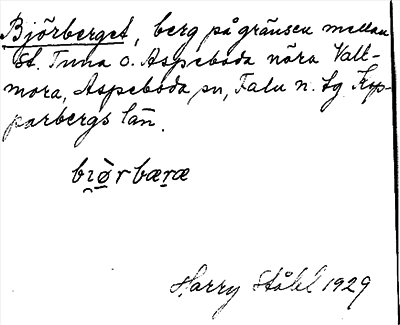 Björberget, berg på gränsen mellan
St. Tuna o. Aspeboda nära Vall-
mora, Aspeboda sn, Falu n. tg Kop-
parbergs län.
bi̯ø̱rbæṟæ
Harry Ståhl 1929